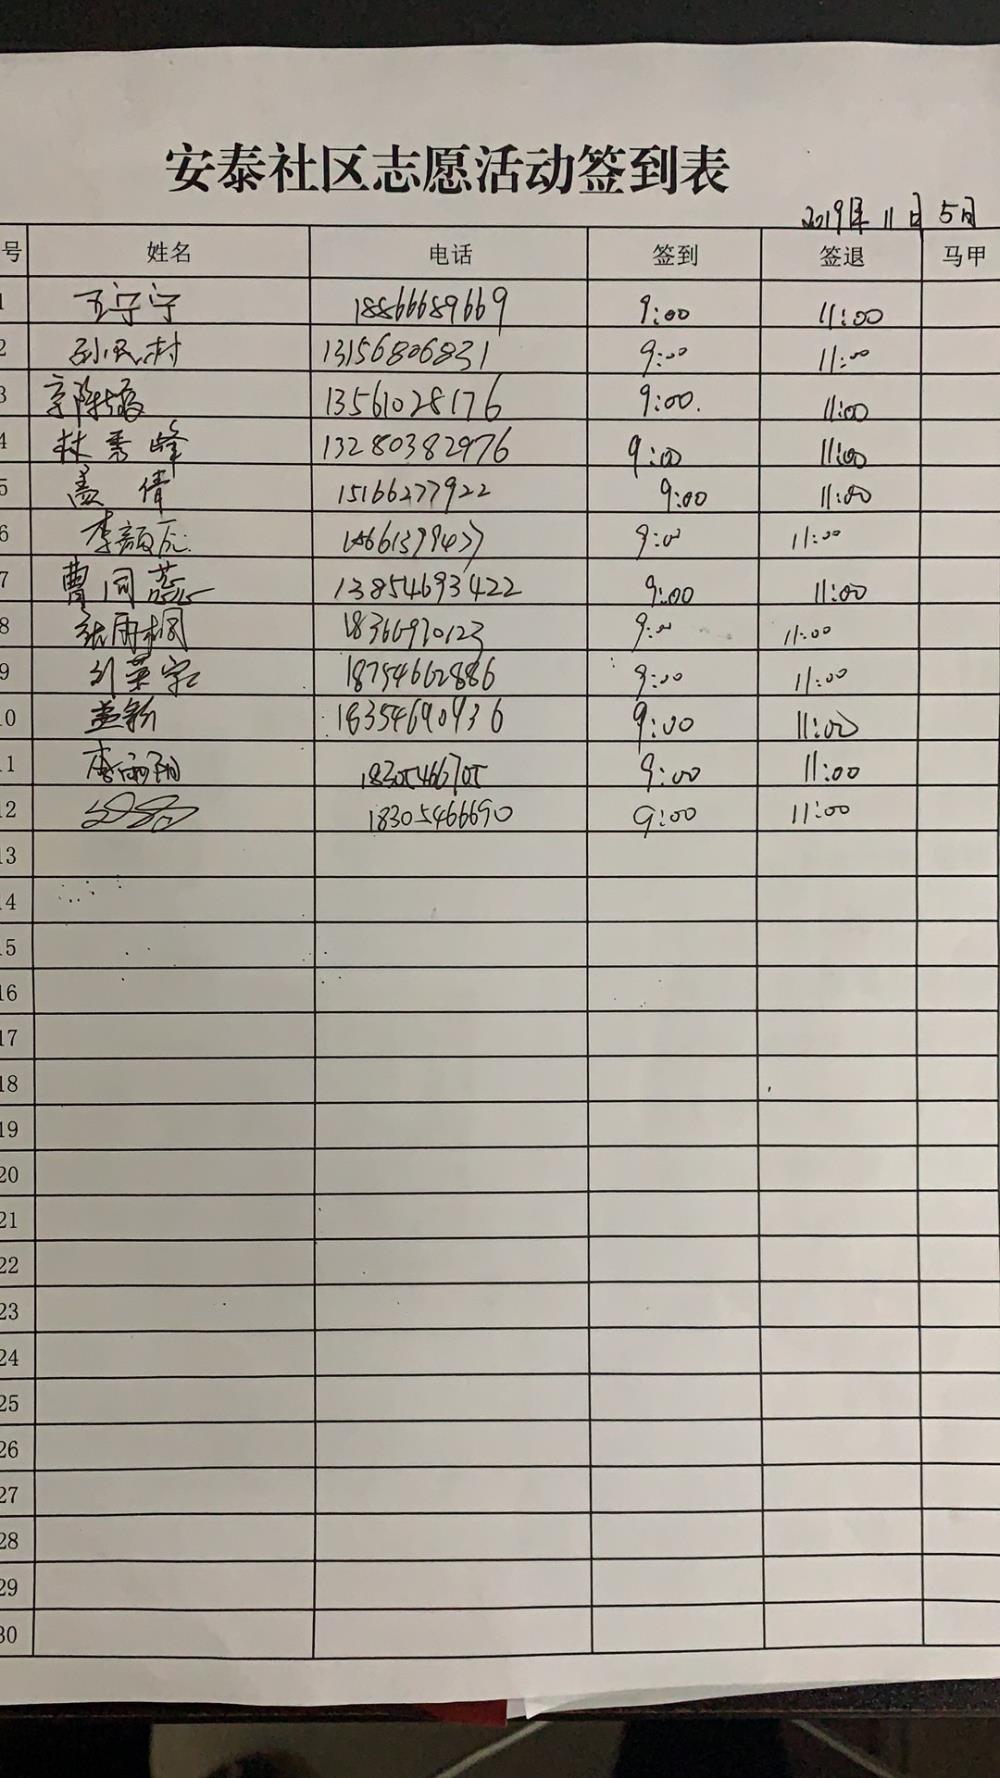 安泰社区志愿活动签到表
2019年 11日 5日
号 姓名 电话 签到 签退 马甲
1 王宁宁 18866689669 9:00 11:00
2 孙民村 13156806831 9:00 11:00
3 13561028176 9:00. 11:00
4 林秀峰 13280382976 9:00 11:00
5 孟倩 15166277922 9:00 11:00
6 李颜 9:00 11:00
7 曹同蕊 13854693422 9:00 11:00
8 张雨桐 18366970123 9:00 11:00
9 刘英 18754662886 9:00 11:00
10 18354690936 9:00 11:00
11 李雨翔 18305466705 9:00 11:00
12 18305466690 9:00 11:00
13
14
15
16
17
18
19
20
21
22
23
24
25
26
27
28
29
30